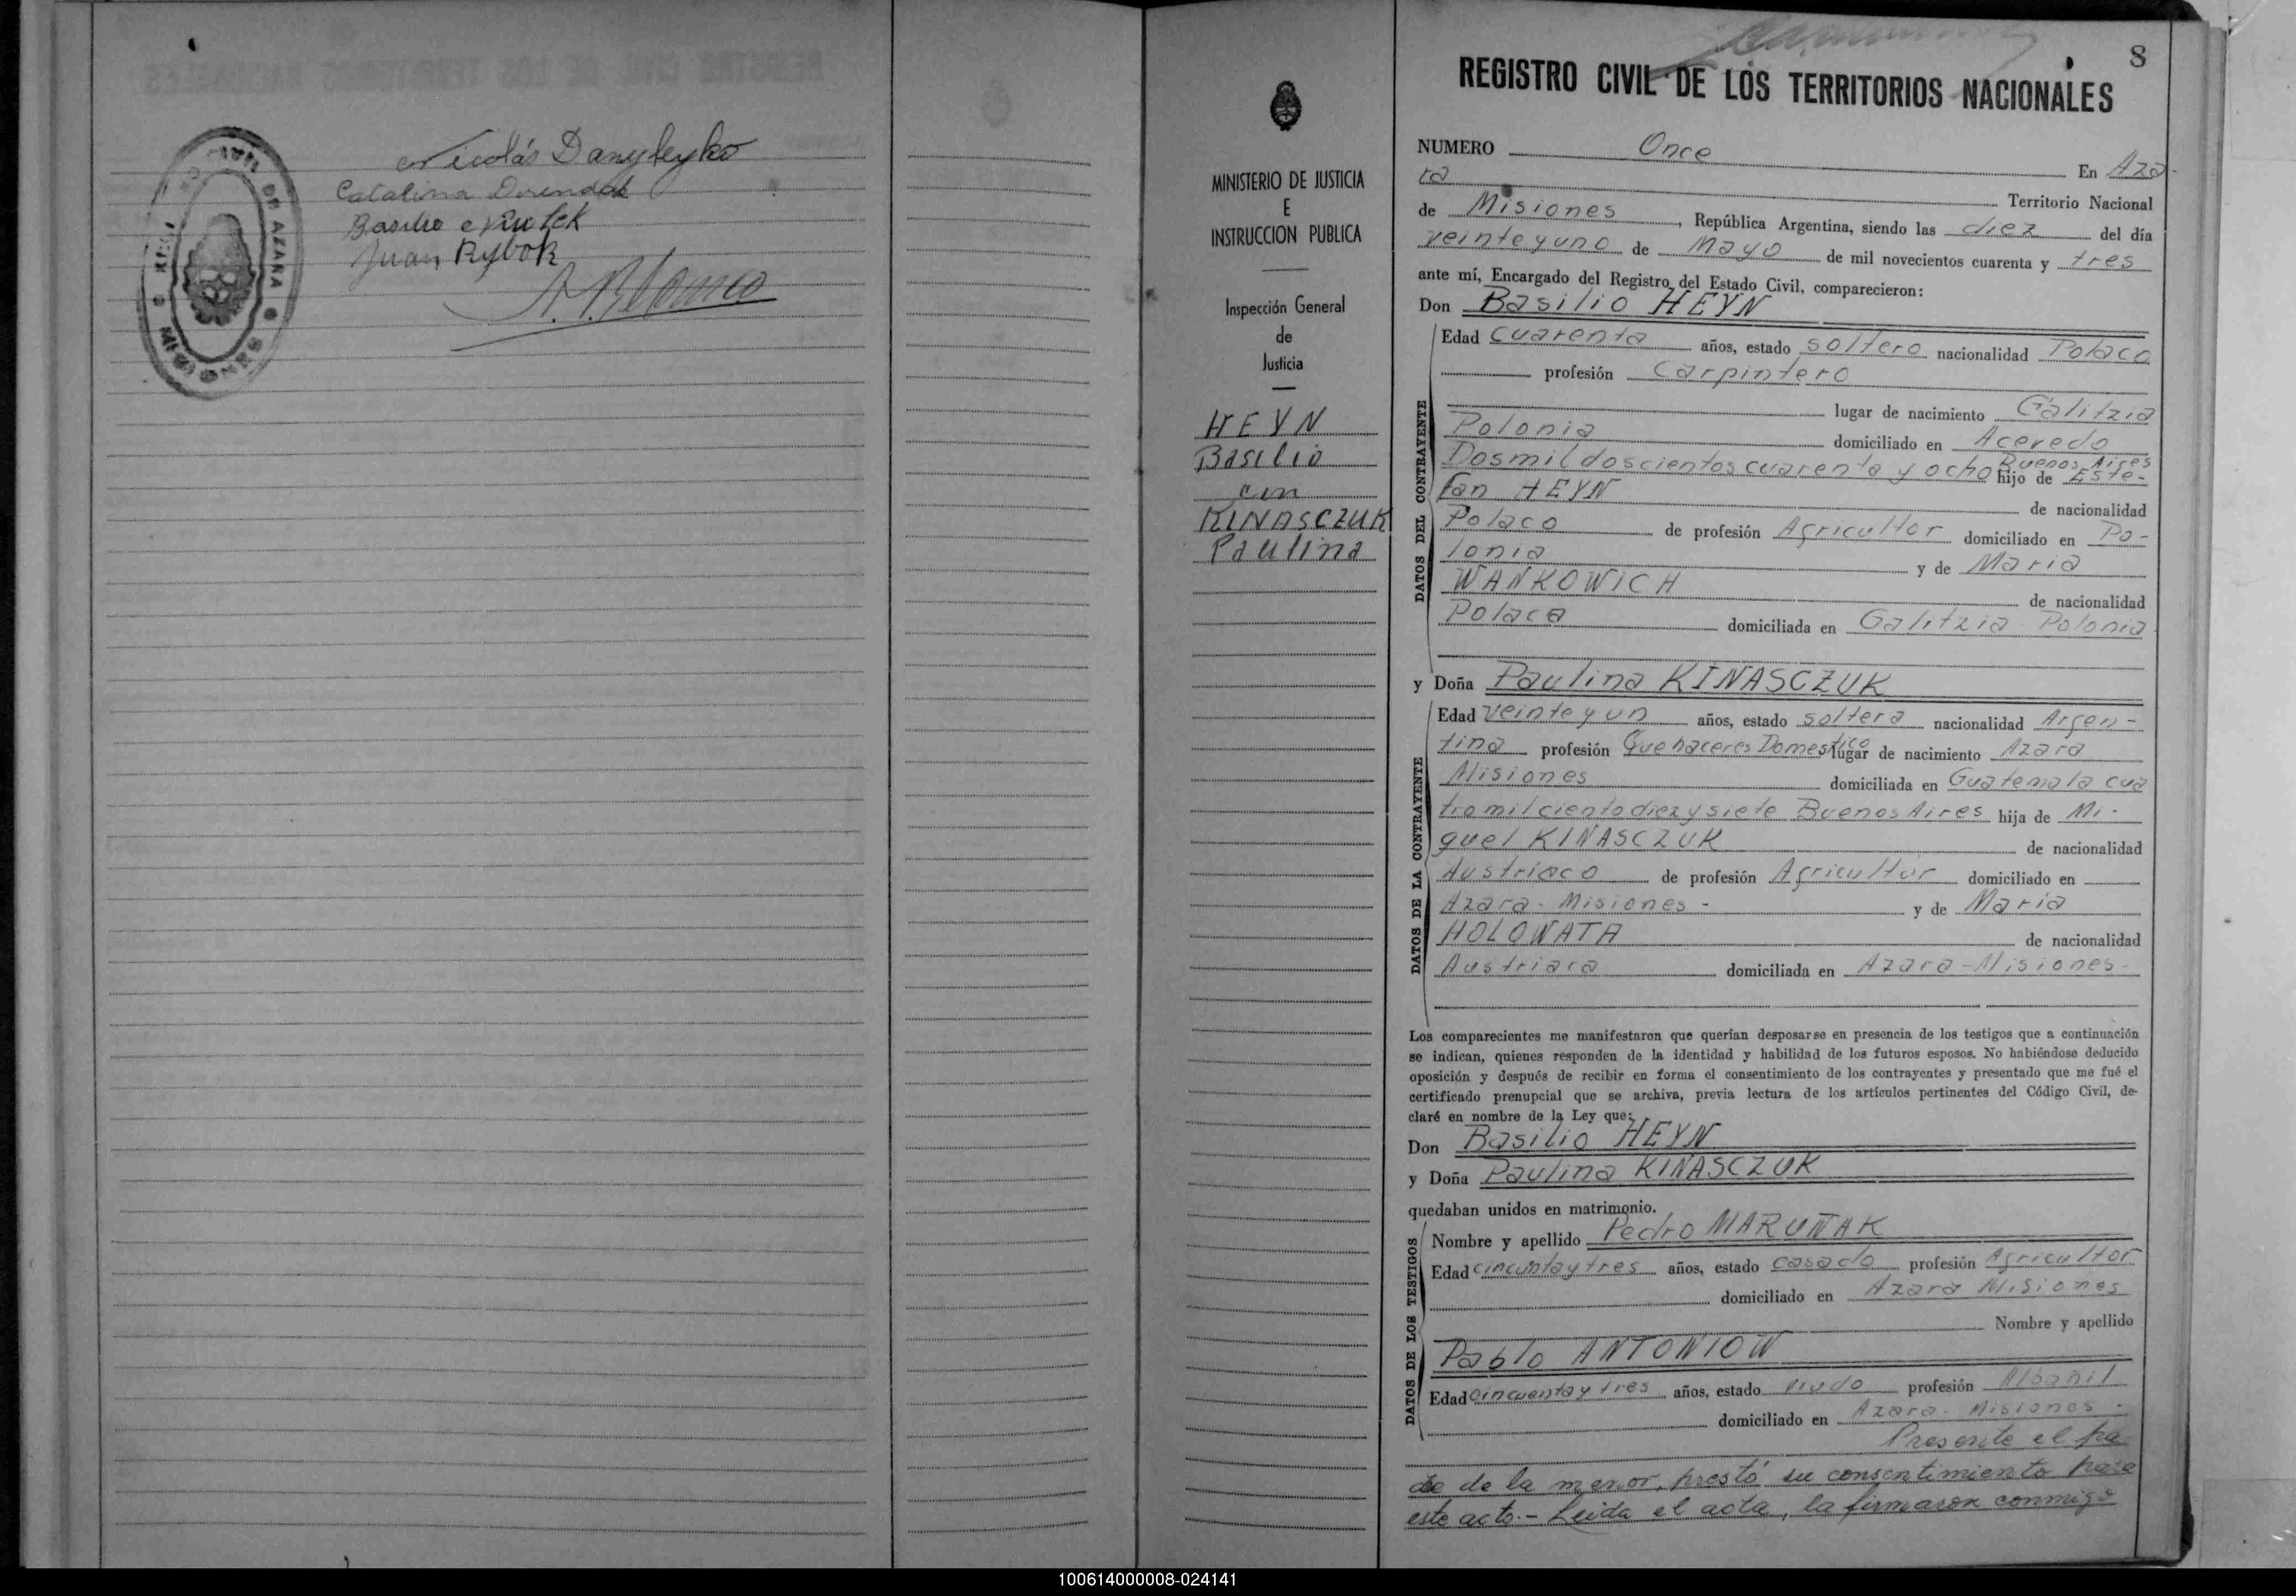 Nicolás Danyleyko
Catalina
Basilio
Juan Rybok
DE AZARA
MISIONES
MINISTERIO DE JUSTICIA
E
INSTRUCCION PUBLICA
Inspección General
de
Justicia
HEYN
Basilio
con
KINASCZUK
Paulina
8
REGISTRO CIVIL DE LOS TERRITORIOS NACIONALES
NUMERO Once En Aza-
ra Territorio Nacional
de Misiones, República Argentina, siendo las diez del día
veinte y uno de Mayo de mil novecientos cuarenta y tres
ante mí, Encargado del Registro del Estado Civil, comparecieron:
Don Basilio HEYN
DATOS DEL CONTRAYENTE
Edad cuarenta años, estado soltero nacionalidad Polaco
profesión Carpintero
lugar de nacimiento Galitzia
Polonia domiciliado en Acevedo
Dos mil doscientos cuarenta y ocho Buenos Aires hijo de Este-
fan HEYN de nacionalidad
Polaco de profesión Agricultor domiciliado en Po-
lonia y de Maria
WANKOWICH de nacionalidad
Polaca domiciliada en Galitzia Polonia
y Doña Paulina KINASCZUK
DATOS DE LA CONTRAYENTE
Edad veinte y un años, estado soltera nacionalidad Argen-
tina profesión Quehaceres Domestico lugar de nacimiento Azara
Misiones domiciliada en Guatemala cua
tro mil ciento diez y siete Buenos Aires hija de Mi-
guel KINASCZUK de nacionalidad
Austriaco de profesión Agricultor domiciliado en
Azara - Misiones - y de Maria
HOLOWATA de nacionalidad
Austriaca domiciliada en Azara - Misiones -
Los comparecientes me manifestaron que querían desposarse en presencia de los testigos que a continuación
se indican, quienes responden de la identidad y habilidad de los futuros esposos. No habiéndose deducido
oposición y después de recibir en forma el consentimiento de los contrayentes y presentado que me fué el
certificado prenupcial que se archiva, previa lectura de los artículos pertinentes del Código Civil, de-
claré en nombre de la Ley que:
Don Basilio HEYN
y Doña Paulina KINASCZUK
quedaban unidos en matrimonio.
DATOS DE LOS TESTIGOS
Nombre y apellido Pedro MARUÑAK
Edad cincuntay tres años, estado casado profesión Agricultor
domiciliado en Azara Misiones
Nombre y apellido
Pablo ANTONIOW
Edad cincuenta y tres años, estado viudo profesión Albañil
domiciliado en Azara - Misiones -
Presente el pa-
dre de la menor, prestó su consentimiento para
este acto.- Leida el acta, la firmaron conmigo
100614000008-024141